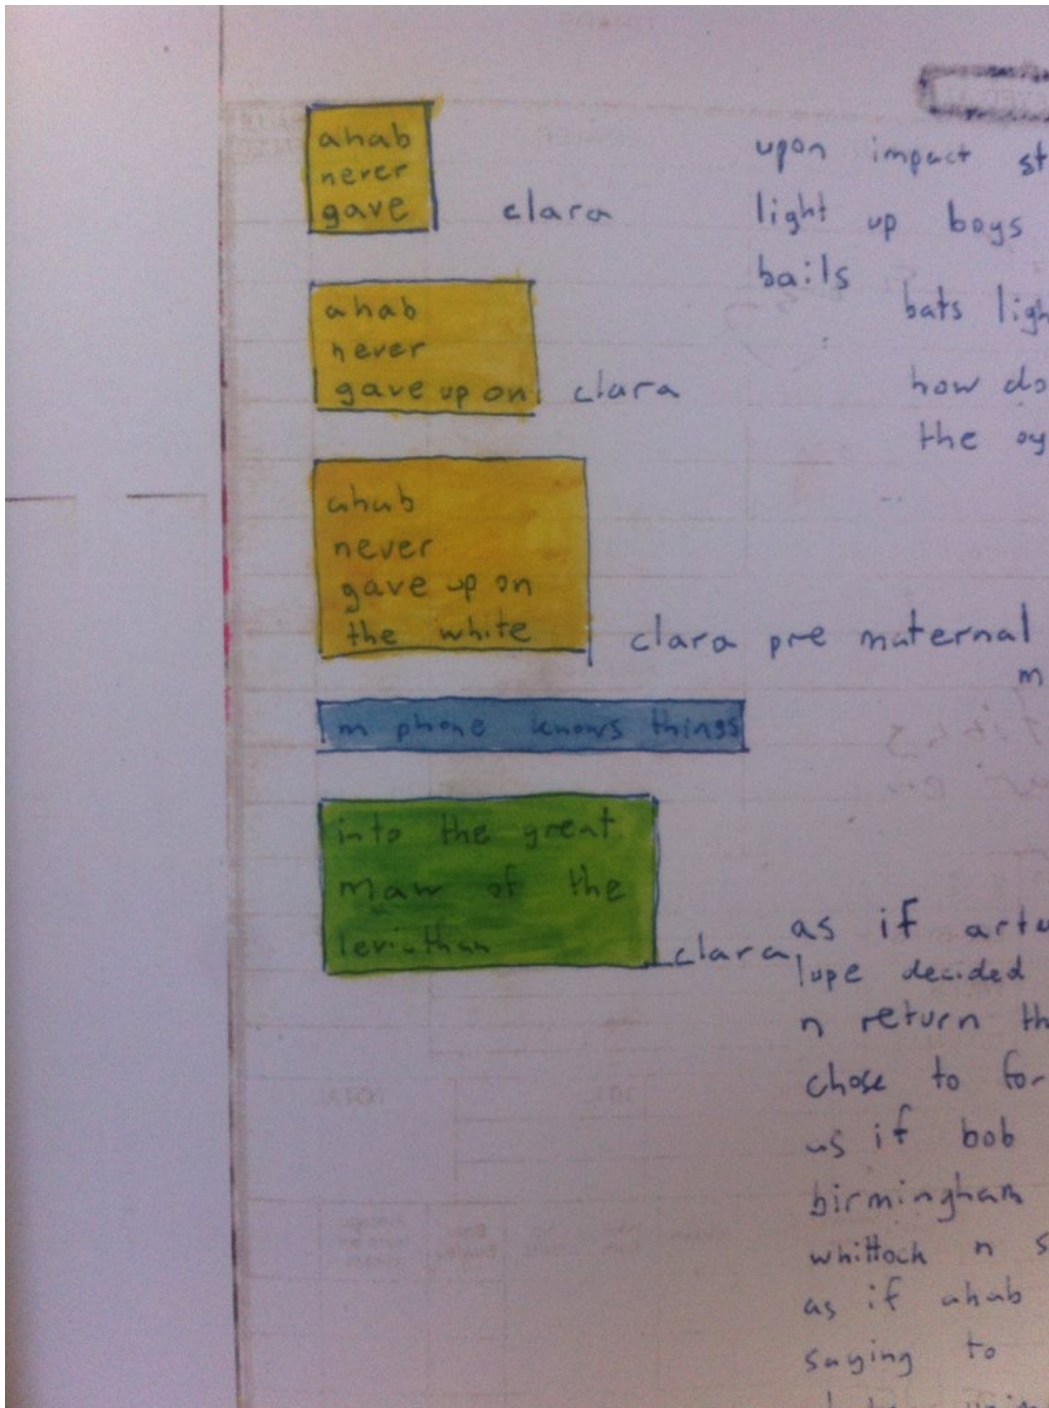 ahab
never
gave
clara
ahab
never
gave up on
clara
ahab
never
gave up on
the white
clara pre maternal
m
m phone knows things
into the great
maw of the
leviathan
clara
upon impact st
light up boys
bails
bats ligh
how do
the oy
as if artu
lupe decided
n return th
chose to for
as if bob
birmingham
whittock n s
as if ahab
saying to